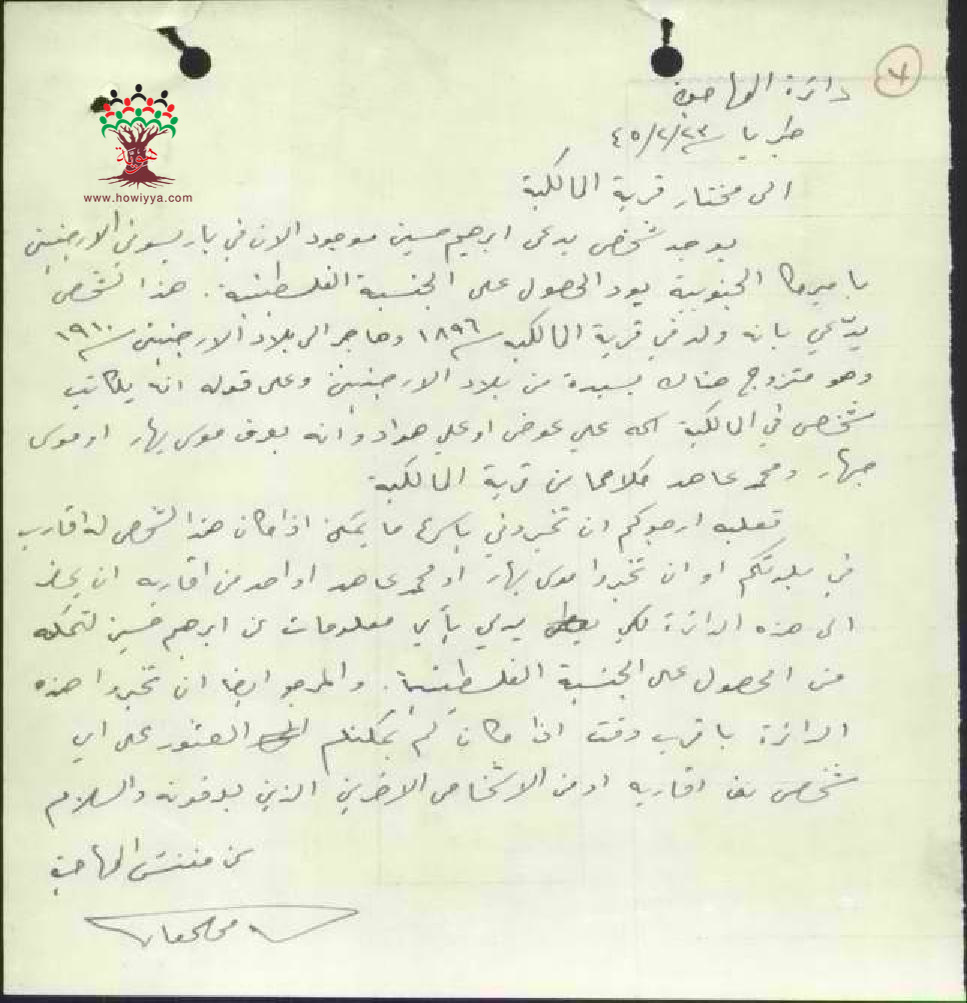 ٧
دائرة المهاجرة
طبريا ٤٥/٢/٢٣
هوية
www.howiyya.com
الى مختار قرية المالكية
يوجد شخص يدعى ابرهيم حسين موجود الان في الارجنتين
باميركا الجنوبية يود الحصول على الجنسية الفلسطينية. هذا الشخص
يدّعي بانه ولد في قرية المالكيه سنة ١٨٩٦ وهاجر الى بلاد الارجنتين سنة ١٩١٠
وهو متزوج هناك بسيدة من بلاد الارجنتين وعلى قوله انه يكاتب
شخص في المالكية اسمه علي عوض او علي وانه يعرف موسى بهار او موسى
جهار ومحمد عاهد كلاهما من قرية المالكية
فعليه ارجوكم ان تخبروني باسرع ما يمكن اذا كان هذا الشخص له اقارب
في بلدتكم او ان تخبروا موسى بهار او محمد عاهد او احد من اقاربه ان يحضر
الى هذه الدائرة لكي يدلي بأي معلومات عن ابرهيم حسين لتمكنه
من الحصول على الجنسية الفلسطينية. والمرجو ايضا ان تخبروا هذه
الدائرة باقرب وقت اذا كان لم يمكنكم العثور على اي
شخص من اقاربه او من الاشخاص الاخرين الذين يعرفونه والسلام
عن مفتش المهاجرة